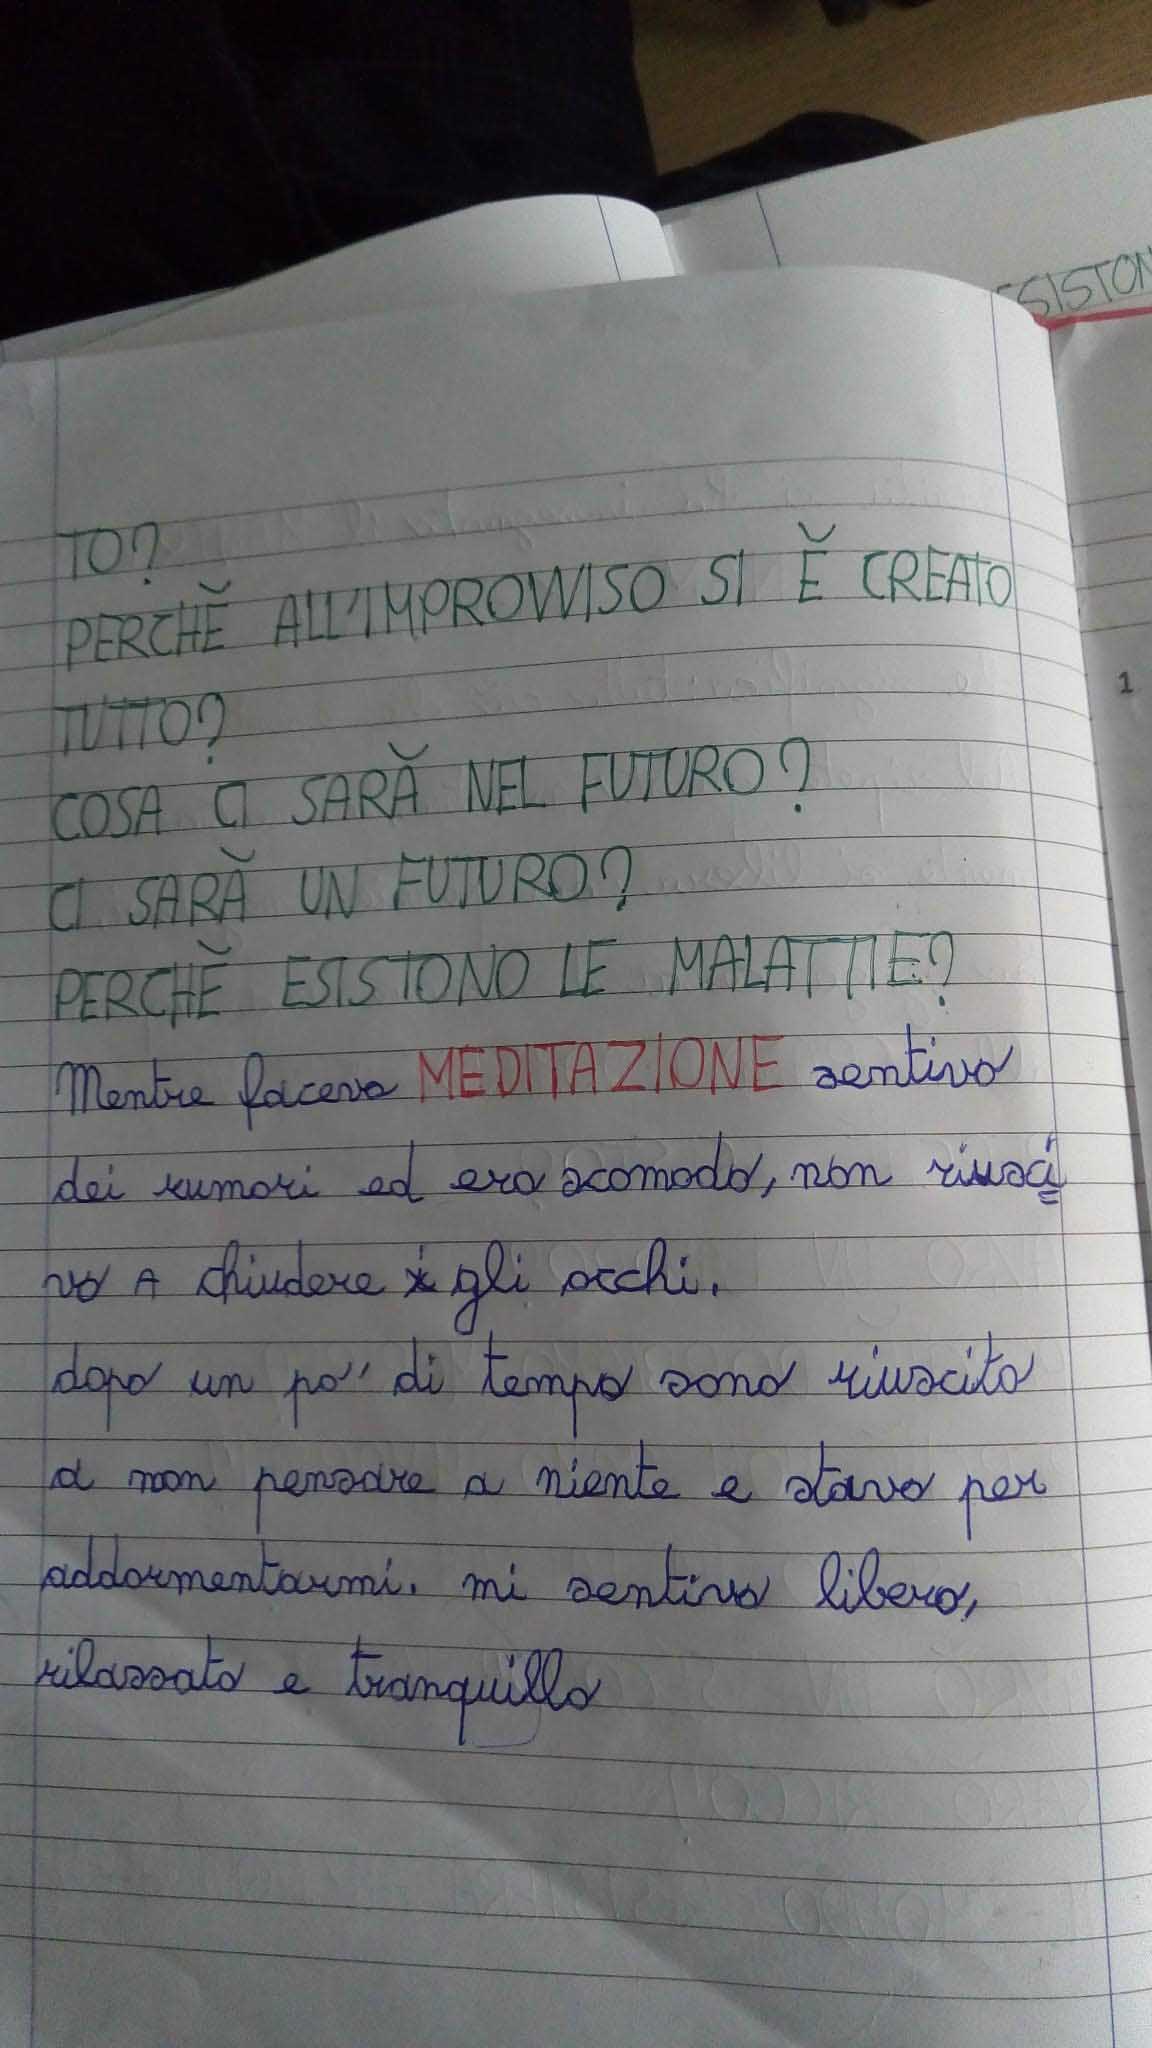 ESISTON
TO?
PERCHĔ ALL'IMPROVVISO SI Ĕ CREATO
TUTTO?
COSA CI SARĂ NEL FUTURO?
CI SARĂ UN FUTURO?
PERCHĔ ESISTONO LE MALATTIE?
Mentre facevo MEDITAZIONE sentivo
dei rumori ed ero scomodo, non riusci
vo A chiudere gli occhi.
dopo un po' di tempo sono riuscito
a non pensare a niente e stavo per
addormentarmi. mi sentivo libero,
rilassato e tranquillo
1